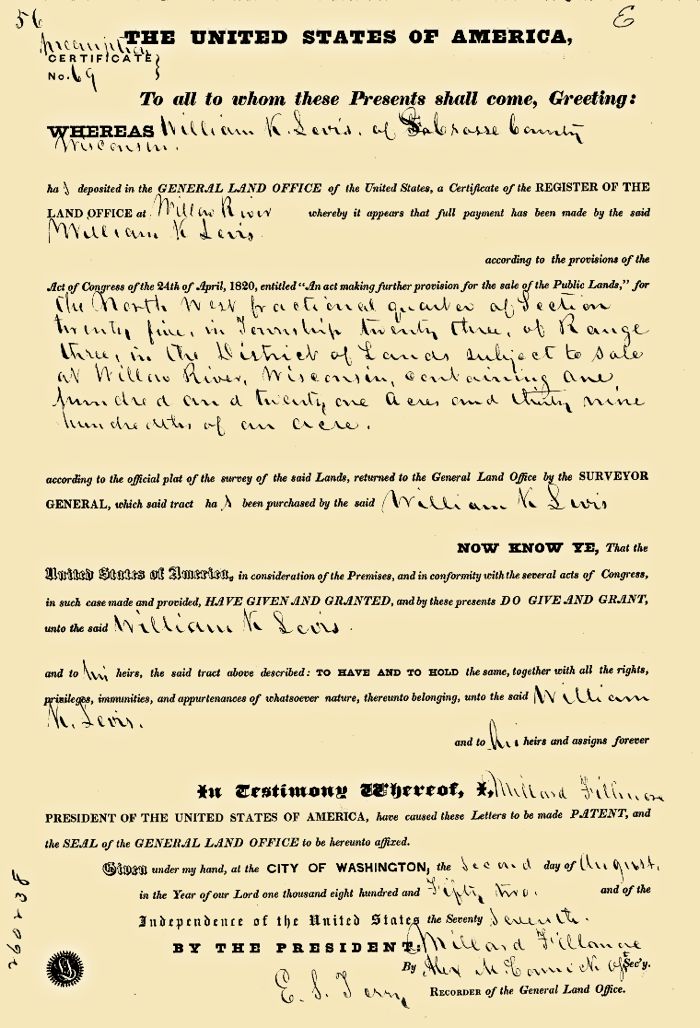 56
E
THE UNITED STATES OF AMERICA,
Preemption
CERTIFICATE
No. 69
To all to whom these Presents shall come, Greeting:
WHEREAS William K. Levis. of LaCrosse County
Wisconsin.
ha s deposited in the GENERAL LAND OFFICE of the United States, a Certificate of the REGISTER OF THE
LAND OFFICE at Willow River whereby it appears that full payment has been made by the said
William K Levis.
according to the provisions of the
Act of Congress of the 24th of April, 1820, entitled "An act making further provision for the sale of the Public Lands," for
the North West fractional quarter of Section
twenty five, in Township twenty three, of Range
three, in the District of Lands subject to sale
at Willow River, Wisconsin, containing one
hundred and twenty one acres and thirty nine
hundredths of an acre.
according to the official plat of the survey of the said Lands, returned to the General Land Office by the SURVEYOR
GENERAL, which said tract ha s been purchased by the said William K Levis
NOW KNOW YE, That the
United States of America, in consideration of the Premises, and in conformity with the several acts of Congress,
in such case made and provided, HAVE GIVEN AND GRANTED, and by these presents DO GIVE AND GRANT,
unto the said William K Levis.
and to his heirs, the said tract above described: TO HAVE AND TO HOLD the same, together with all the rights,
privileges, immunities, and appurtenances of whatsoever nature, thereunto belonging, unto the said William
K. Levis.
and to his heirs and assigns forever
In Testimony Whereof, I, Millard Fillmore
PRESIDENT OF THE UNITED STATES OF AMERICA, have caused these Letters to be made PATENT, and
the SEAL of the GENERAL LAND OFFICE to be hereunto affixed.
Given under my hand, at the CITY OF WASHINGTON, the second day of August,
in the Year of our Lord one thousand eight hundred and Fifty two. and of the
Independence of the United States the Seventy Seventh.
BY THE PRESIDENT: Millard Fillmore
By Alex McCormick Sec'y.
E. S. Terry RECORDER of the General Land Office.
260238